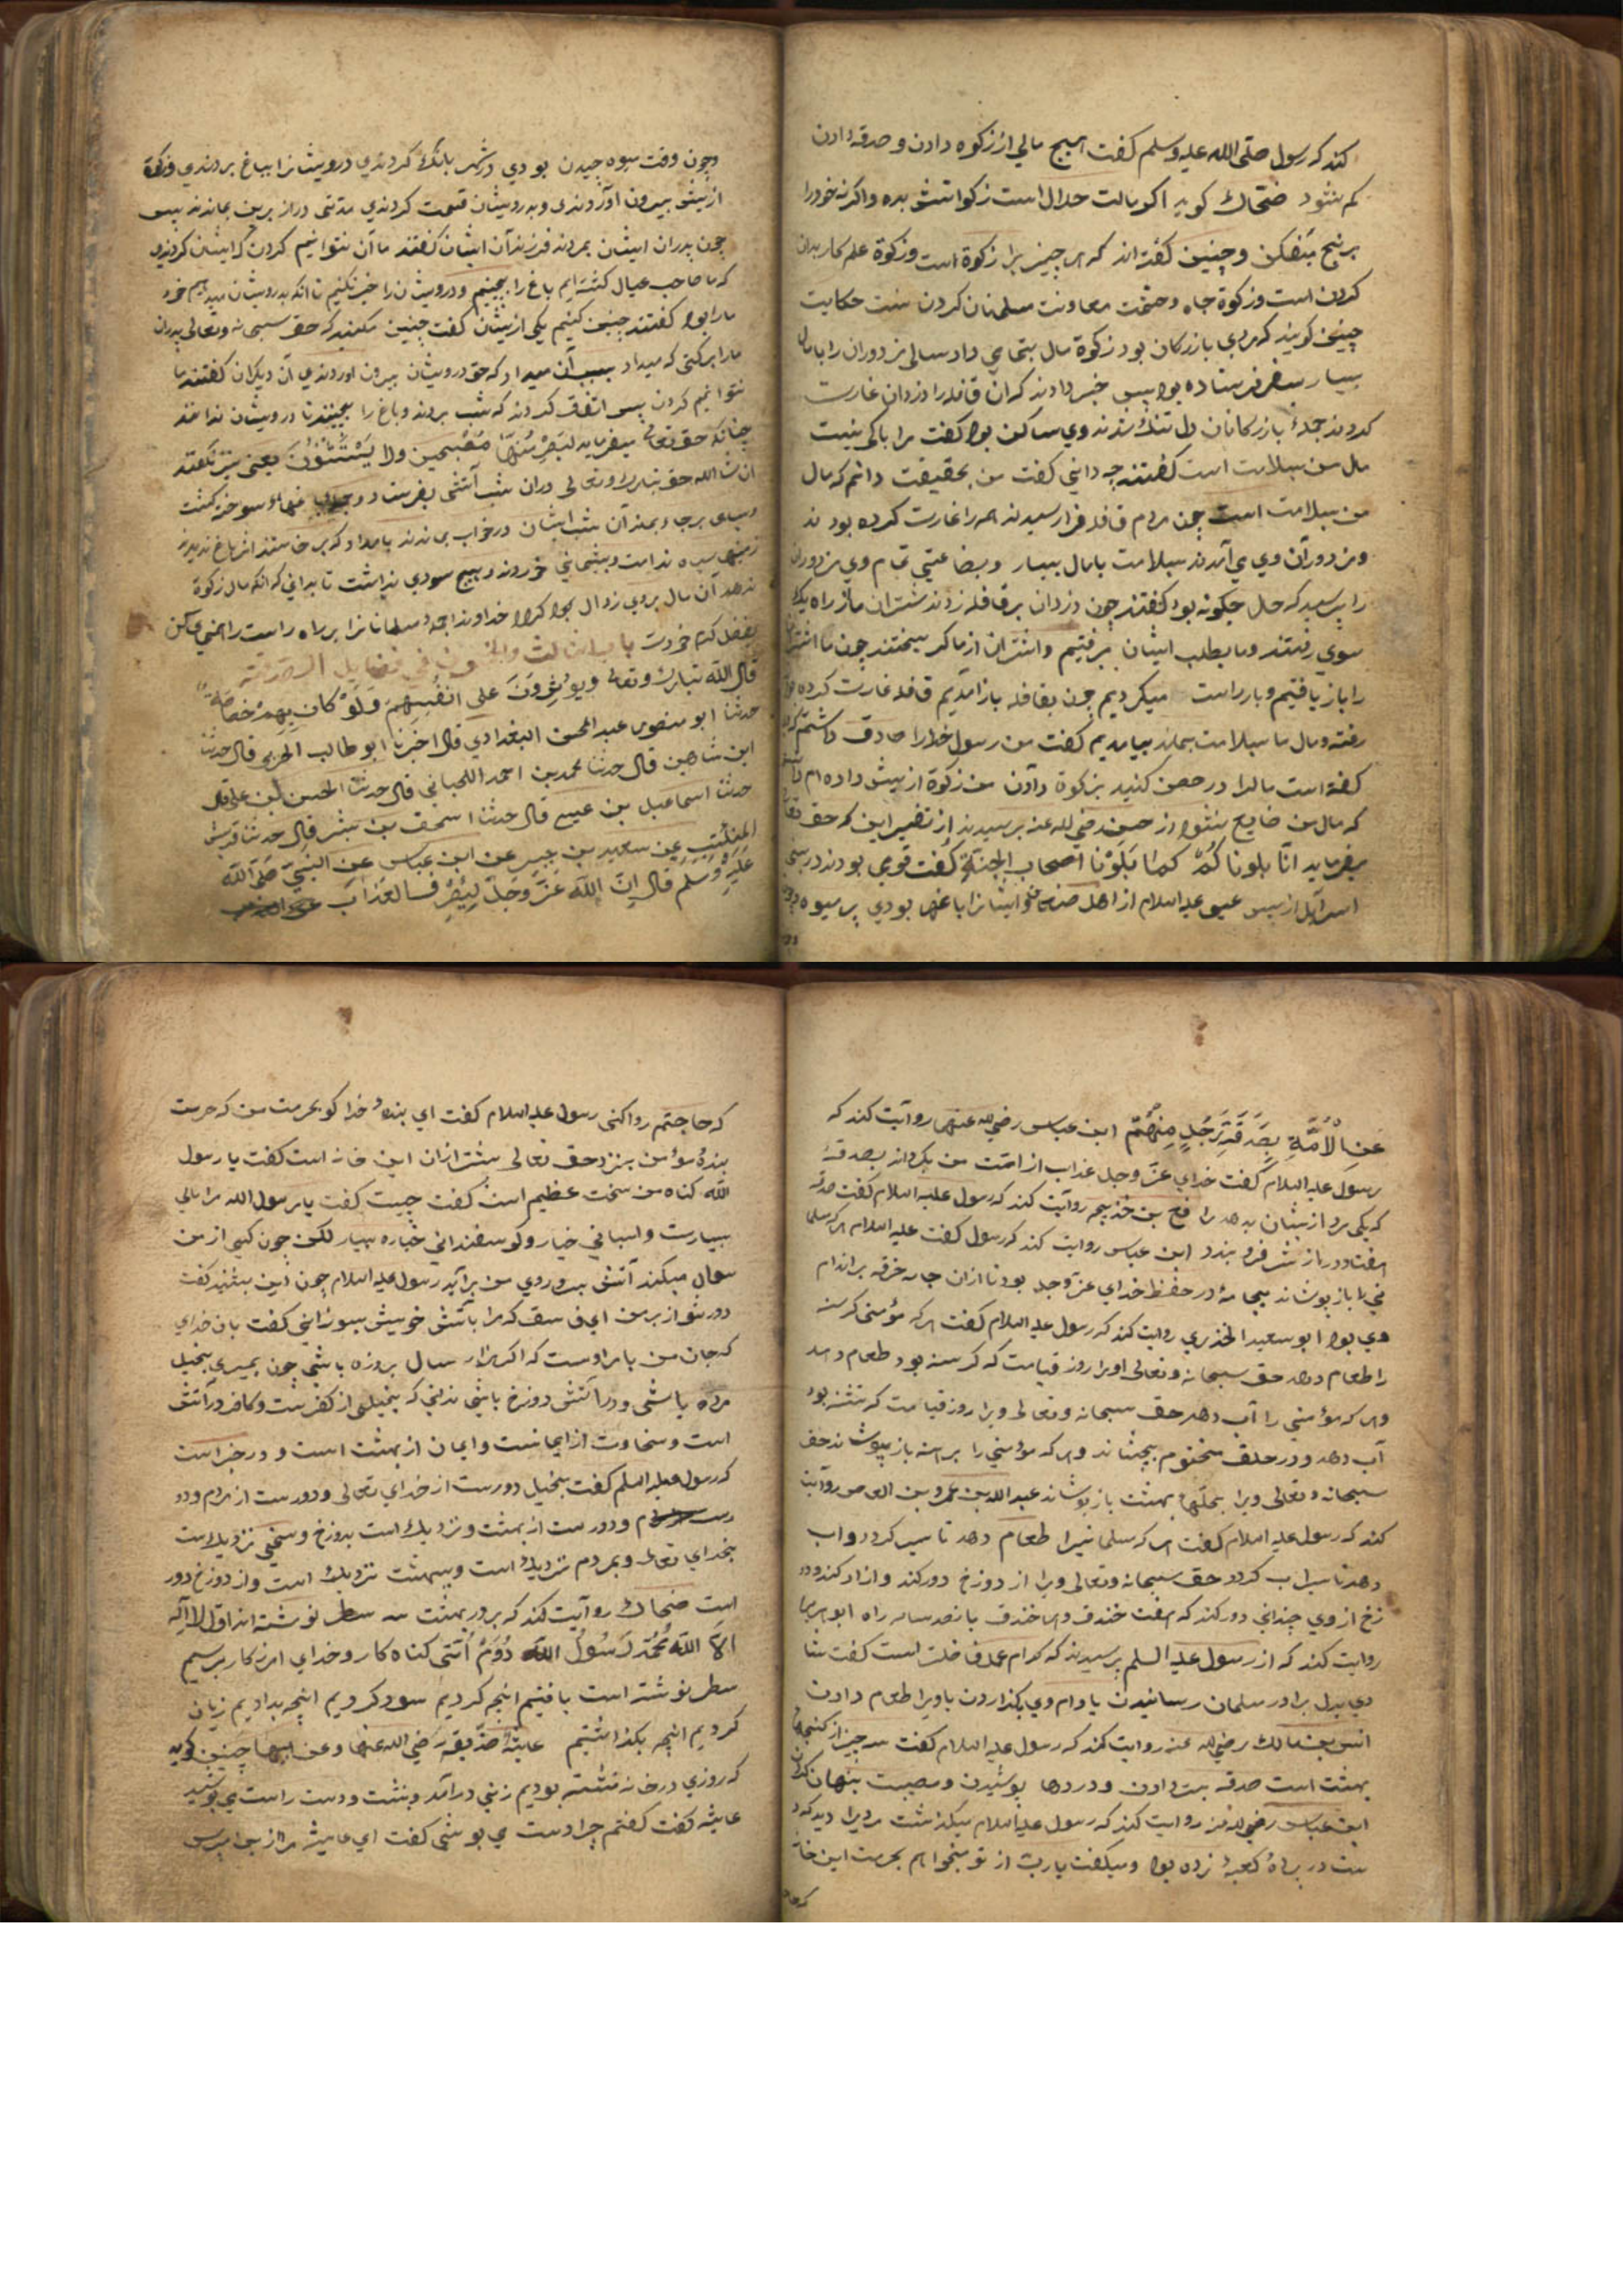 کند که رسول صلی الله علیه وسلم کفت هیچ مالی از زکوه دادن و صدقه دادن
کم نشود ضحاک کوید اکر مالت حلال است زکواتش بده واکرنه خودرا
برنج میفکن و چنین کفته اند که هر چیز برا زکوة است وزکوة علم کار بدان
کردن است وزکوة جاه وحشمت معاونت مسلمانان کردن است حکایت
چنین کویند که مردی بازرکان بود زکوة مال بتمامی داد سالی مزدوران را بامال
بسیار بسفر فرستاده بود پس خبر دادند که آن قافله را دزدان غارت
کردند جملهٔ بازرکانان دل تنک شدند وی ساکن بود کفت مرا باکی نیست
مال من بسلامت است کفتند چه دانی کفت من بحقیقت دانم که مال
من بسلامت است چون مردم قافله فرا رسیدند همه را غارت کرده بودند
ومزدوران وی می آمدند بسلامت بامال بسیار وبضاعتی تمام وی مزدوران
را پرسید که حال چکونه بود کفتند چون دزدان بر قافله زدند شتران ما از راه یک
سوی رفتند وما بطلب ایشان برفتیم واشتران از ما کریختند چون ما اشتر
را باز یافتیم وبار راست میکردیم چون بقافله باز آمدیم قافله غارت کرده بود
رفته ومال ما بسلامت بماند بیامدیم کفت من رسول خدارا صادق داشتم که
کفته است مالرا در حصن کنید بزکوة دادن من زکوة از پیش داده ام دانستم
که مال من ضایع نشود از حسن رضی الله عنه پرسیدند از تفسیر این که حق تعا
میفرماید انا بلوناکم کما بلونا اصحاب الجنة کفت قومی بودند در بنی
اسرائیل از پس عیسی علیه السلام از اهل وایشانرا باغها بودی پر میوه
وچون وقت میوه چیدن بودی در شهر بانک کردندی درویشانرا بباغ بردندی وزکوة
از پیش بیرون آوردندی وبدرویشان قسمت کردندی مدتی دراز برین بماندند پس
چون پدران ایشان بمردند فرزندان ایشان کفتند ما آن نتوانیم کردن که ایشان کردندی
که ما صاحب عیال کشته ایم باغ را بچینیم ودرویشان را خبر نکنیم تا آنکه بدرویشان میدهیم خود
مارا بود کفتند چنین کنیم یکی از ایشان کفت چنین مکنید که حق سبحانه وتعالی پدران
مارا برکتی که میداد بسبب آن میداد که حق درویشان بیرون اوردندی آن دیکران کفتند ما
نتوانیم کردن پس اتفاق کردند که شب بروند وباغ را بچینند تا درویشان ندانند
چنانکه حق تعالی میفرماید لیصرمنها مصبحین ولا یستثنون یعنی نیز نکفتند
ان شاالله حق تبارک وتعالی دران شب آتشی بفرستاد سوخته کشت
وسیاه برجا بماند آن شب ایشان درخواب بماندند بامداد که برخاستند اثر باغ ندیدند
سیاه ندامت وپشیمانی خوردند وهیچ سودی نداشت تا بدانی که آنکه مال زکوة
ندهد آن مال بروی زوال بود اکر خداوندا جمله مسلمانانرا بر راه راست راهنمی کن
بفضل کرم خودت باب الثالث والخمسون فی فضایل الصدقة
قال الله تبارک وتعالی ویؤثرون علی انفسهم ولو کان بهم خصاصة
حدثنا ابو منصور عبد المحسن البغدادی قال اخبرنا ابو طالب قال حدثنا
ابن شاهین قال حدثنا محمد بن احمد قال حدثنا الحسن بن علی قال
حدثنا اسماعیل بن عیسی قال حدثنا اسحق بن بشر قال حدثنا
عن سعید بن جبیر عن ابن عباس عن النبی صلی الله
علیه وسلم قال ان الله عز وجل لیصرف العذاب
عن الأمة بصدقة رجل منهم ابن عباس رضی الله عنهما روایت کند که
رسول علیه السلام کفت خدای عز وجل عذاب از امت من بکرداند بصدقهٔ
که یکی مرد از ایشان بدهد رافع بن خدیج روایت کند که رسول علیه السلام کفت صدقه
هفتاد در از شر فرو بندد ابن عباس روایت کند که رسول کفت علیه السلام هر که مسلما
نی را باز پوشاند بجامهٔ در حفظ خدای عز وجل بود تا ازان جامه خرقه بر اندام
وی بود ابو سعید الخدری روایت کند که رسول علیه السلام کفت هر که مؤمنی کرسنه
را طعام دهد حق سبحانه وتعالی اورا روز قیامت که کرسنه بود طعام دهد
وهر که مؤمنی را آب دهد حق سبحانه وتعالی ویرا روز قیامت که تشنه بود
آب دهد ودر حلق مختوم بچشاند وهر که مؤمنی را برهنه باز پوشاند حق
سبحانه وتعالی ویرا بحلهاء بهشت باز پوشاند عبد الله بن عمرو بن العاص روایت
کند که رسول علیه السلام کفت هر که مسلمانیرا طعام دهد تا سیر کردد واب
دهد تا سیراب کردد حق سبحانه وتعالی ویرا از دوزخ دور کند وازاد کند ودو
زخ از وی چندانی دور کند که هفت خندق وهر خندق پانصد ساله راه ابو هریره
روایت کند که از رسول علیه السلم پرسیدند که کدام عمل فاضلتر است کفت شا
دی بدل برادر مسلمان رسانیدن یا وام وی بکذاردن یا ویرا طعام دادن
انس بن مالک رضی الله عنه روایت کند که رسول علیه السلام کفت سه چیز از کنجهاء
بهشت است صدقه بسر دادن ودردها پوشیدن ومصیبت پنهان کردن
ابن عباس رضی الله عنه روایت کند که رسول علیه السلام میکذشت مردیرا دید که
دست در پردهٔ کعبه زده بود ومیکفت یارب از تو میخواهم بحرمت این خانه
که حاجتم رواکنی رسول علیه السلام کفت ای بندهٔ خدا کو بحرمت من که حرمت
بندهٔ مؤمن بنزد حق تعالی بیشتر ازان این خانه است کفت یا رسول
الله کناه من سخت عظیم است کفت چیست کفت یا رسول الله مرا مالی
بسیارست واسبانی خیار وکوسفندانی بسیار لکن چون کسی از من
سوال میکند آتش بر روی من برآید رسول علیه السلام چون این بشنید کفت
دور شو از بر من ای فاسق که مرا باتش خویش بسوزانی کفت بان خدای
که جان من بامر اوست که اکر هزار سال بروزه باشی چون بمیری بخیل
مرده باشی ودر آتش دوزخ باشی ندانی که بخیلی از کفرست وکافر در آتش
است وسخاوت از ایمانست وایمان از بهشت است ودر خبر است
که رسول علیه السلم کفت بخیل دورست از خدای تعالی ودورست از مردم ودو
ودورست از بهشت ونزدیک است بدوزخ وسخی نزدیکست
بخدای تعالی وبمردم نزدیک است وببهشت نزدیک است واز دوزخ دور
است ضحاک روایت کند که بر در بهشت سه سطر نوشته اند اول لا اله
الا الله محمد رسول الله دوم امتی کناه کار وخدای امرزکار سیم
سطر نوشته است یافتیم انچه کردیم سود کردیم انچه بدادیم زیان
کردیم انچه بکذاشتیم عایشهٔ صدیقه رضی الله عنها وعن ابیها چنین کوید
که روزی درخانه نشسته بودیم زنی درآمد وبنشست ودست راست می پوشید
عایشه کفت کفتم چرا دست می پوشی کفت ای عایشه مرا ازین مپرس